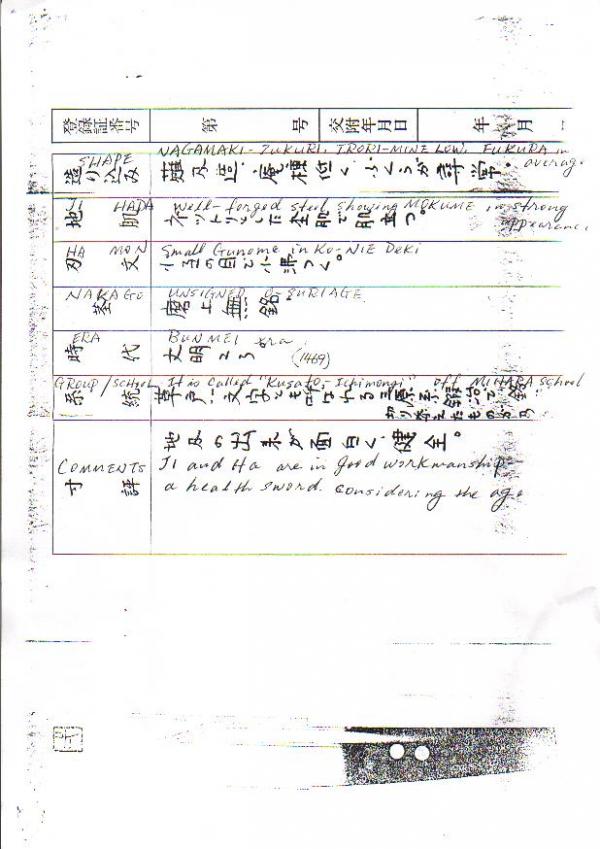 登録証番号 第 号 交附年月日 年 月
SHAPE NAGAMAKI-ZUKURI, IRORI-MINE LOW, FUKURA in average
造り込み 薙刃造、庵棟低く、ふくらが尋常。
JI HADA Well-forged steel showing MOKUME in strong appearance
地肌 ネットリとした杢肌で肌立つ。
HA MON Small Gunome in Ko-NIE DEKI
刃文 小互の目で小沸つく。
NAKAGO UNSIGNED O-SURIAGE
茎 磨上無銘
ERA BUNMEI era
時代 文明ころ (1469)
GROUP/School It is called "Kusato, Ichimonji" off MIHARA School
系統 草戸一文字とも呼ばれる三原系鍛冶で、銘
切り添えたものがあ
地刃の出来が面白く、健全。
COMMENTS JI and HA are in good workmanship-
寸評 a health sword. Considering the age